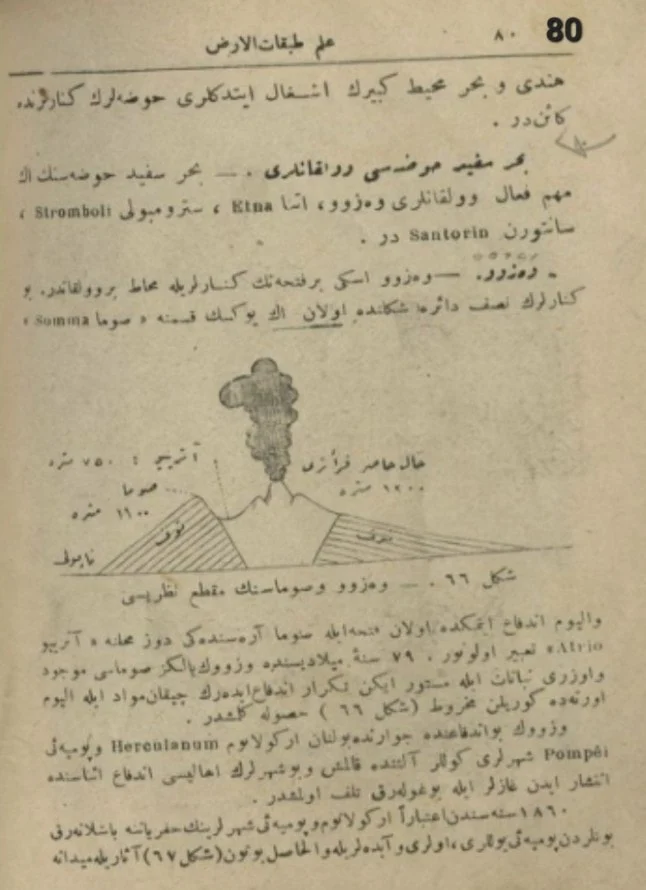 80
٨٠
علم طبقات الارض
هندی و بحر محیط کبیرك اشغال ایتدکلری حوضه‌لرك کنارلرنده
کائن‌در .
بحر سفید حوضه‌سی وولقانلری . — بحر سفید حوضه‌سنك اك
مهم فعال وولقانلری وه‌زوو، اتنا Etna ، سترومبولی Stromboli ،
سانتورن Santorin در .
وه‌زوو. — وه‌زوو اسکی بر فتحه‌نك کنارلریله محاط بر وولقاندر. بو
کنارلرك نصف دائره شکلنده اولان اك یوکسك قسمنه « صوما Somma »
آتریو : ٧٥٠ متره
حال حاضر
١٢٠٠ متره
صوما
١١٠٠ متره
توف
توف
ناپولی
شکل ٦٦ . — وه‌زوو وصوماسنك مقطع نظریسی
والیوم اندفاع ایتمکده اولان فتحه ایله صوما آره‌سنده‌کی دوز محله « آتریو
Atrio» تعبیر اولونور . ٧٩ سنۀ میلادیسنده وزووك یالکز صوماسی موجود
واوزری نباتات ایله مستور ایکن تکرار اندفاع ایده‌رك چیقان مواد ایله الیوم
اورته‌ده کوریلن مخروط (شکل ٦٦ ) حصوله کلشدر .
وزووك بو اندفاعنده جوارنده بولنان ارکولانوم Herculanum و پومپه‌ئی
Pompéi شهرلری کوللر آلتنده قالمش و بو شهرلرك اهالیسی اندفاع اثناسنده
انتشار ایدن غازلر ایله بوغوله‌رق تلف اولمشدر .
١٨٦٠ سنه‌سندن اعتباراً ارکولانوم و پومپه‌ئی شهرلرینك حفریاتنه باشلانه‌رق
بونلردن پومپه‌ئی یوللری ، اولری و آبده‌لریله والحاصل بوتون (شکل ٦٧) آثاریله میدانه